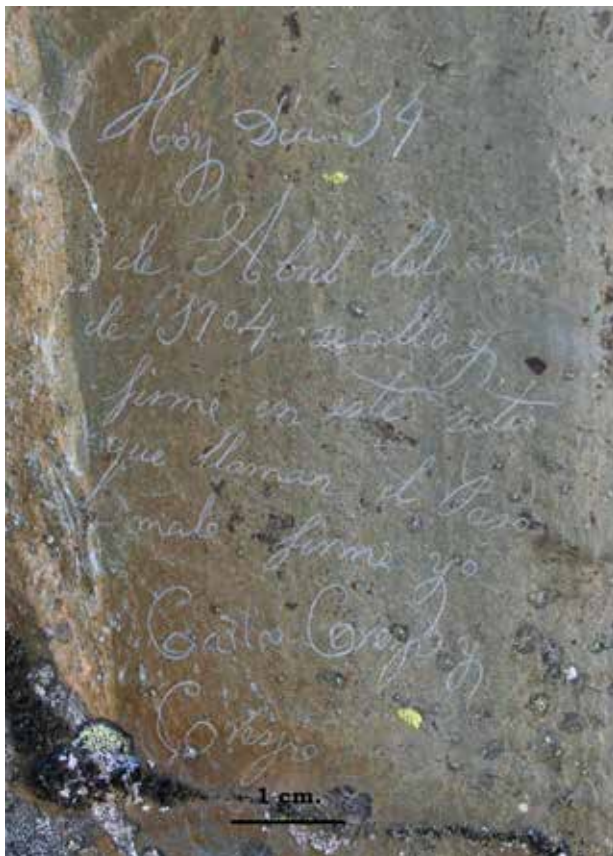 Hoy Dia 14
de Abril del año
de 1904 me allo y
firme en este sitio
que llaman el Paso
malo firme yo
Carlos Crespo y
Crespo
1 cm.